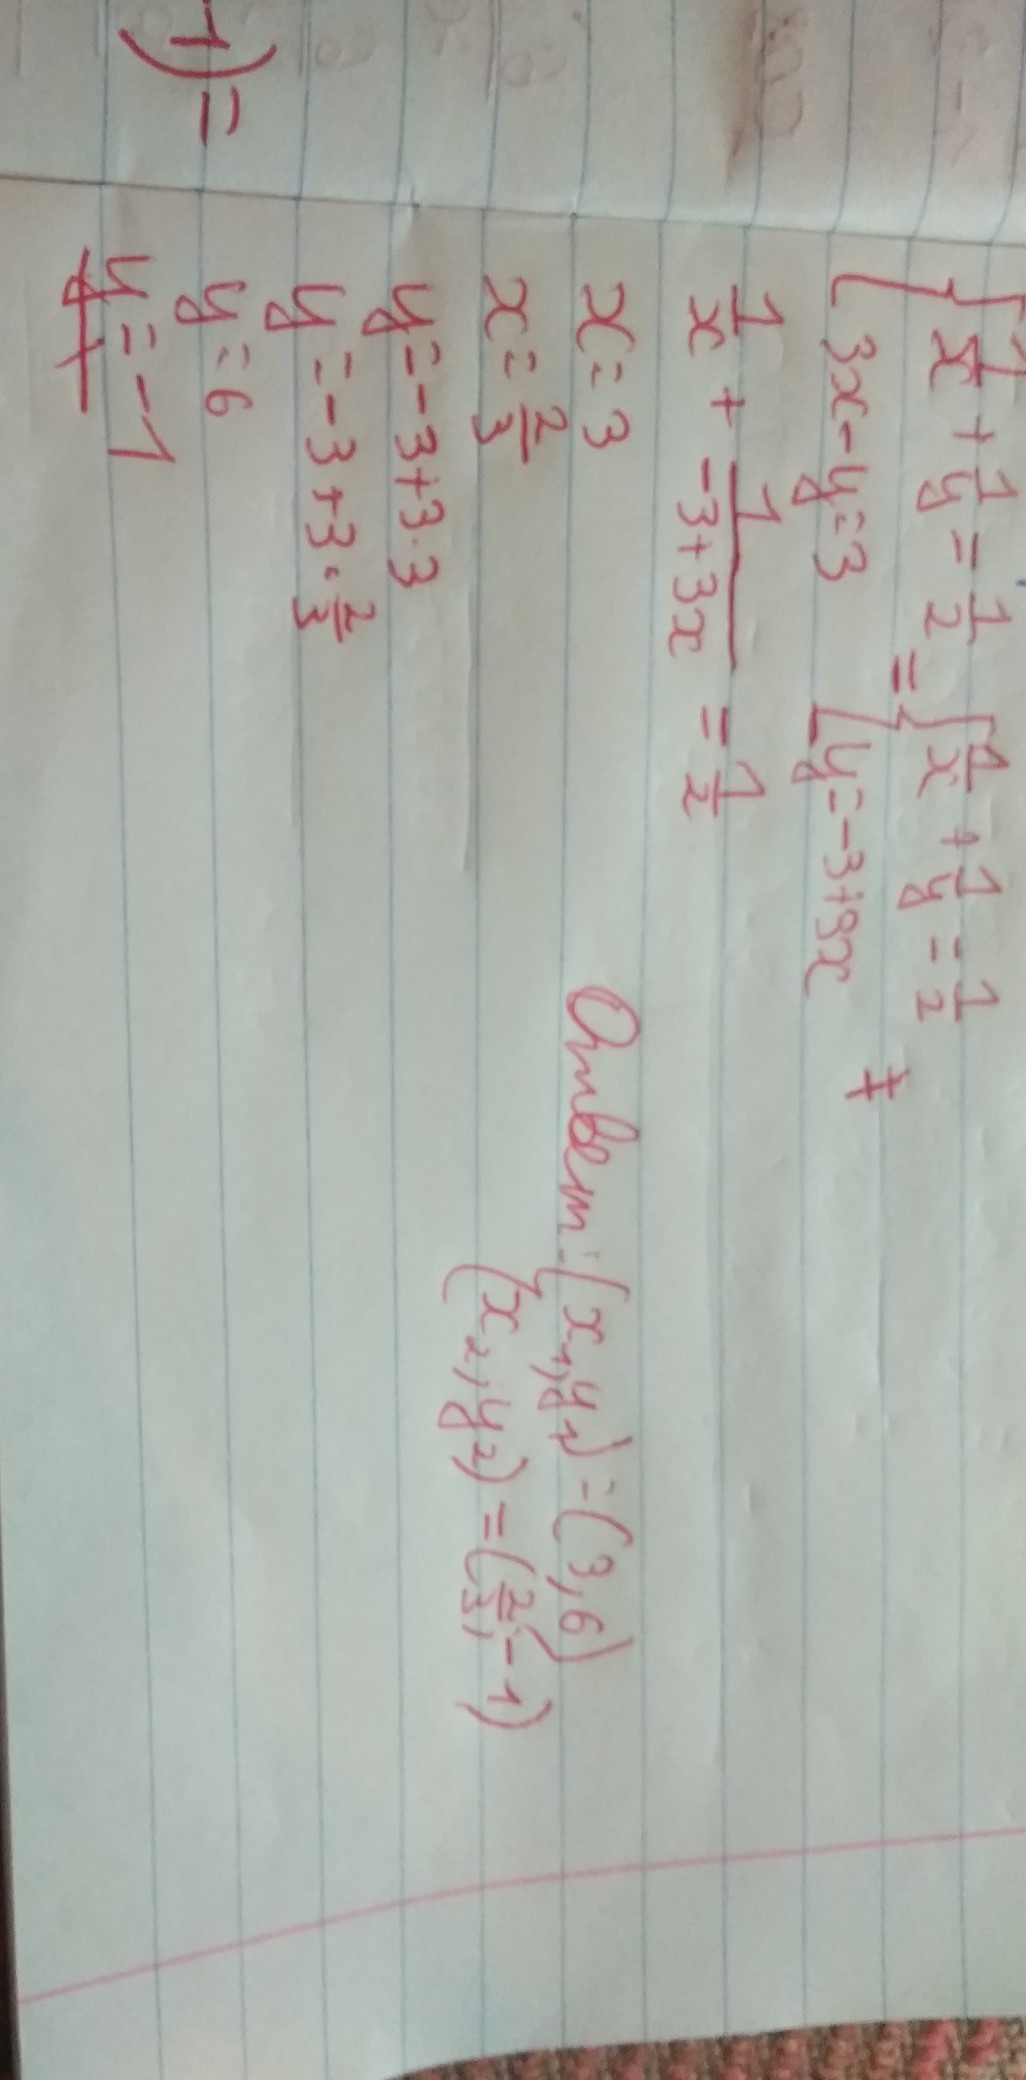 1) =
{ 1/x + 1/y = 1/2 = { 1/x + 1/y = 1/2
{ 3x - y = 3 { y = -3 + 3x
1/x + 1/(-3+3x) = 1/2
x = 3
x = 2/3
y = -3 + 3·3
y = -3 + 3·2/3
y = 6
y = -1
Ответ: (x1, y1) = (3, 6)
(x2, y2) = (2/3, -1)